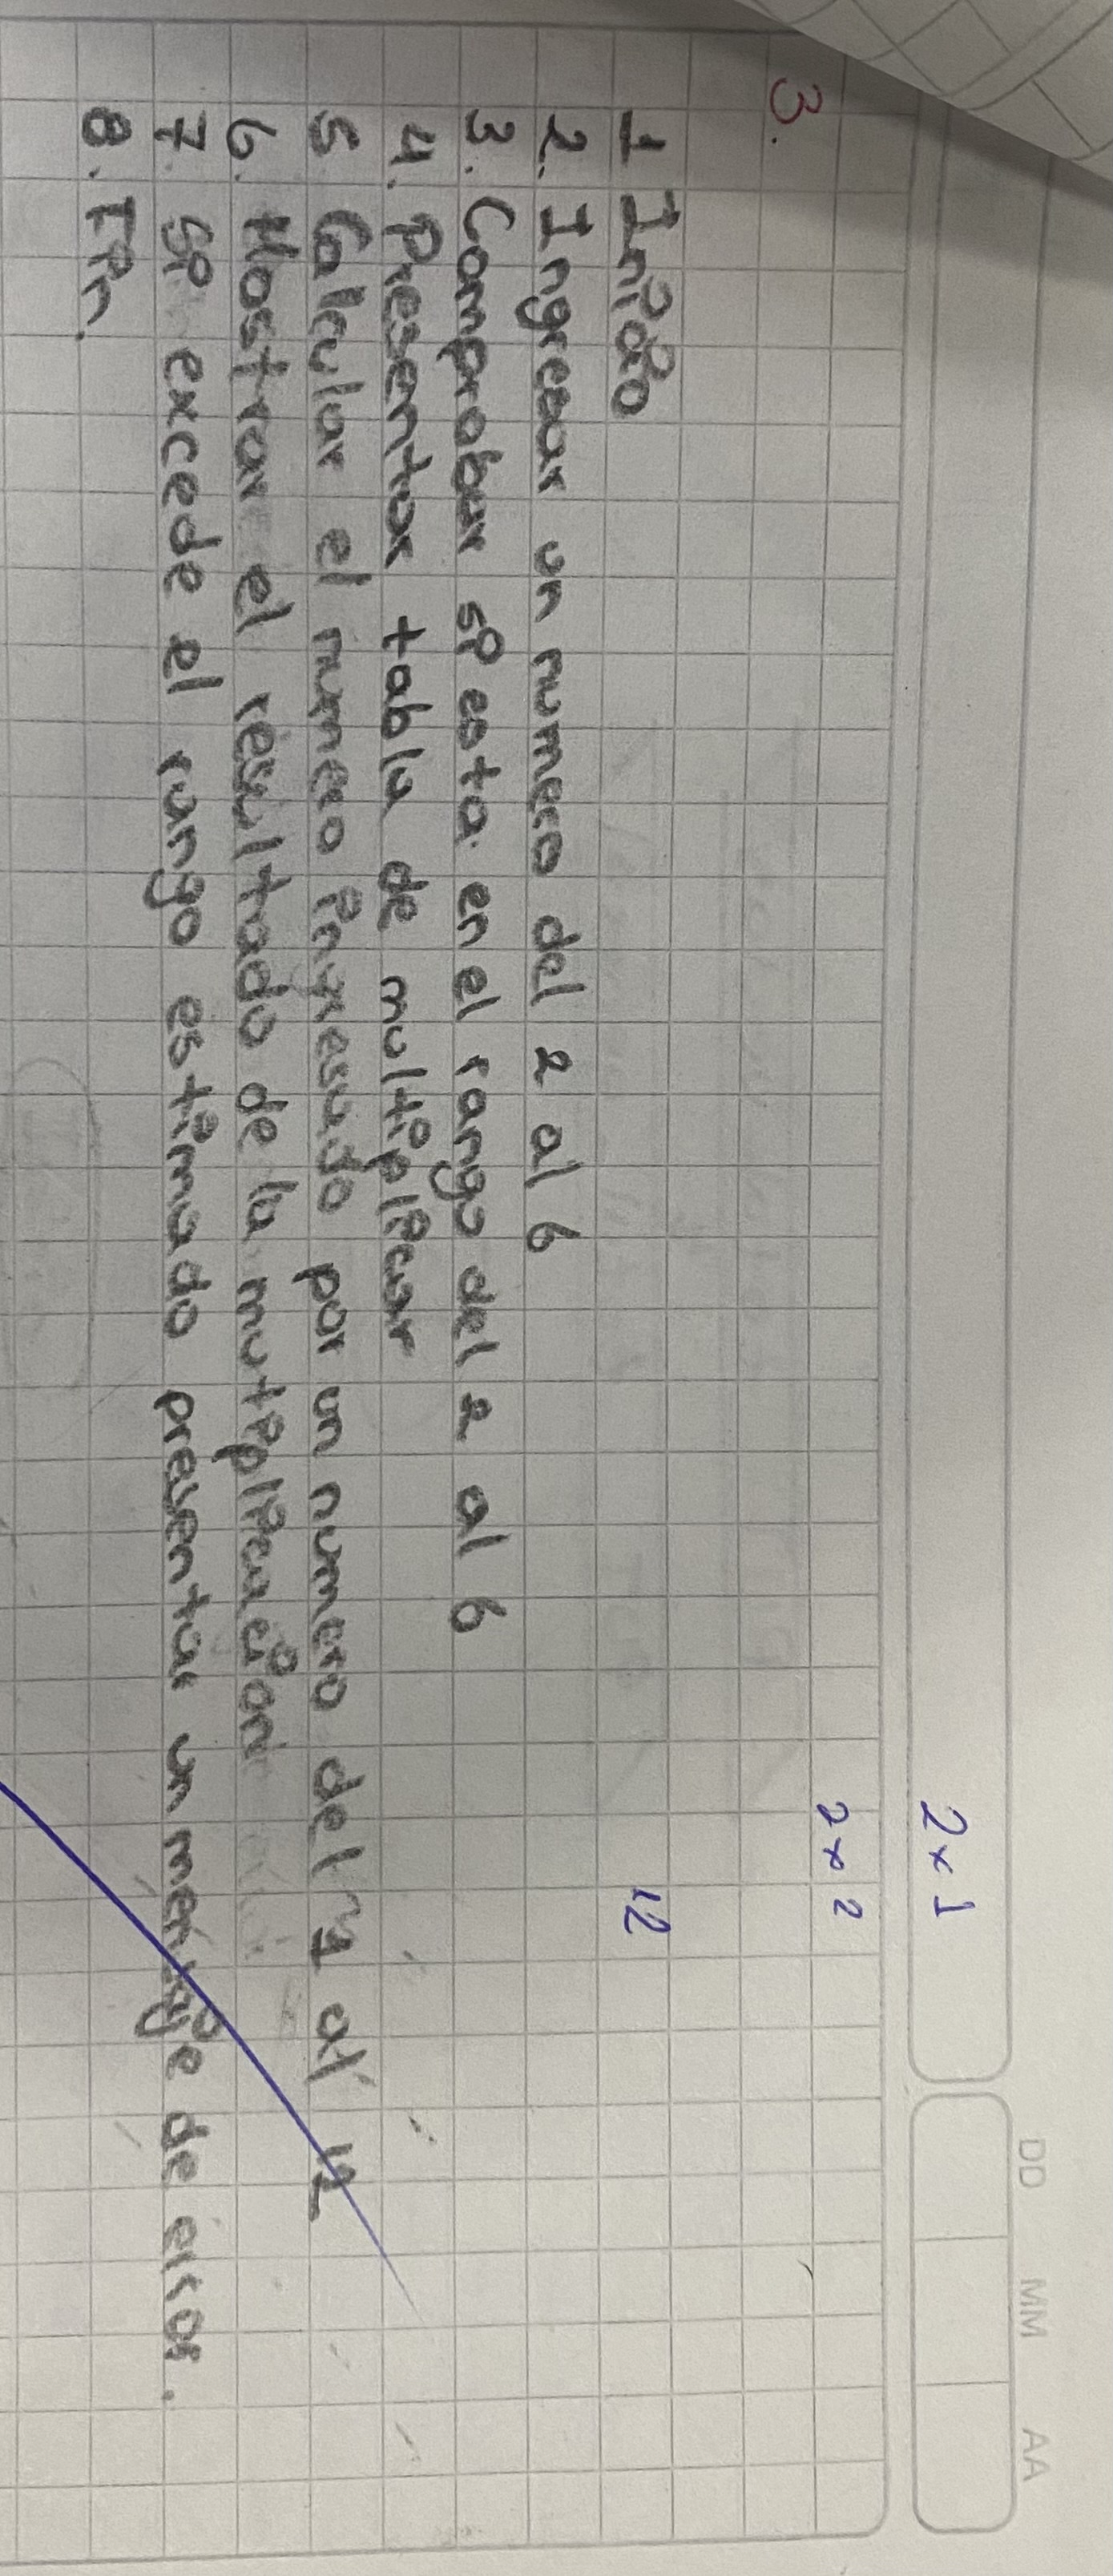 DD MM AA
2x1
2x2
3.
12
1 Inicio
2. Ingresar un numero del 2 al 6
3. Comprobar si esta en el rango del 2 al 6
4. Presentar tabla de multiplicar
5 Calcular el numero ingresado por un numero del 1 al 12
6. Mostrar el resultado de la mutiplicacion
7. Si excede el rango estimado presentar un mensaje de error.
8. Fin.